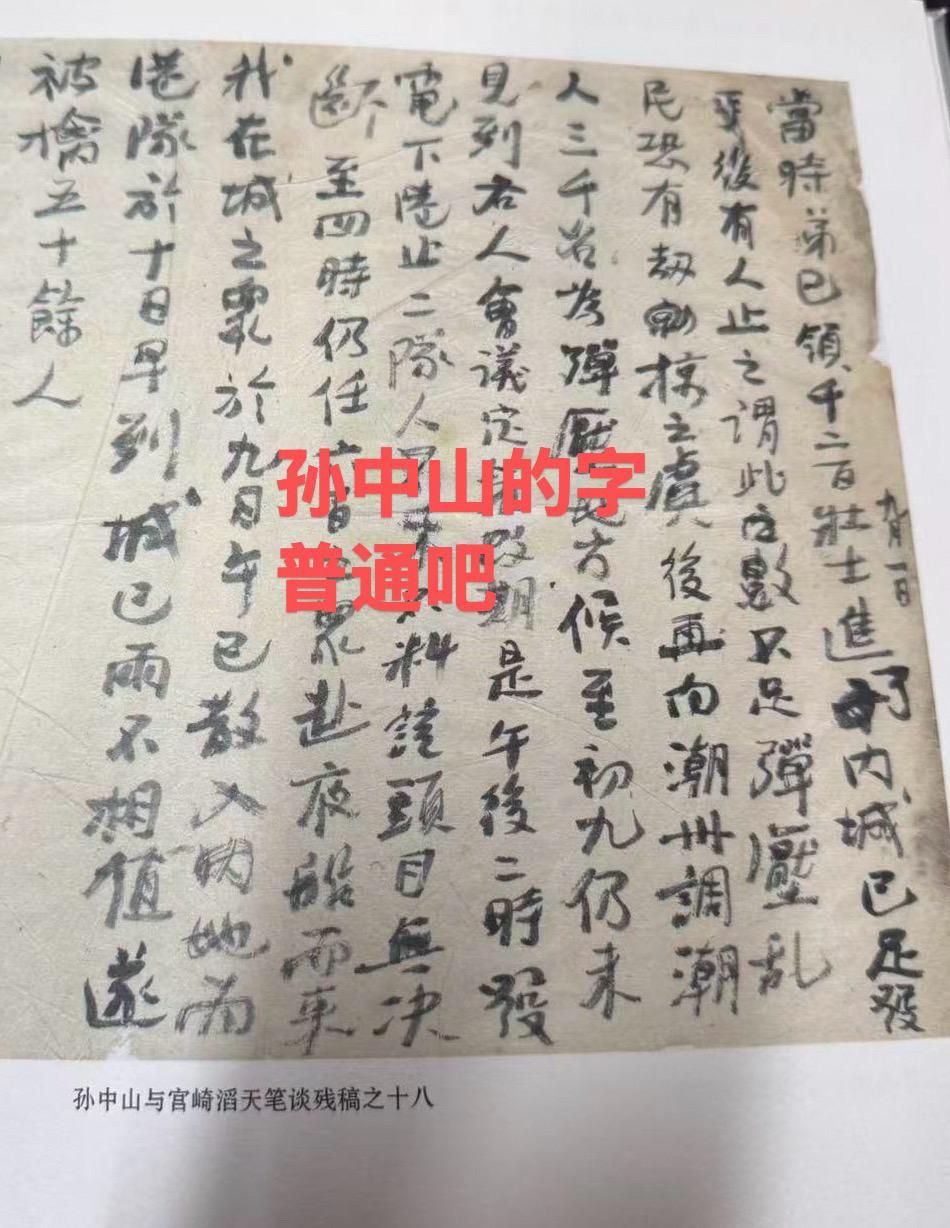 當時弟已領千二百壯士
九月一日
進了内城已足發
手後有人止之謂此方數不足彈壓乱
民恐有刧掠之虞後再向潮州調潮
人三千名為彈壓地方候至初九仍未
見到各人會議定 改期是午後二時發
電下港止二隊人 不料該頭目無决
斷 至四時仍任 衆赴夜船而來
我在城之衆於九日午已散入内地而
港隊於十日早到城已兩不相值遂
被擒五十餘人
孙中山的字
普通吧
孙中山与宫崎滔天笔谈残稿之十八